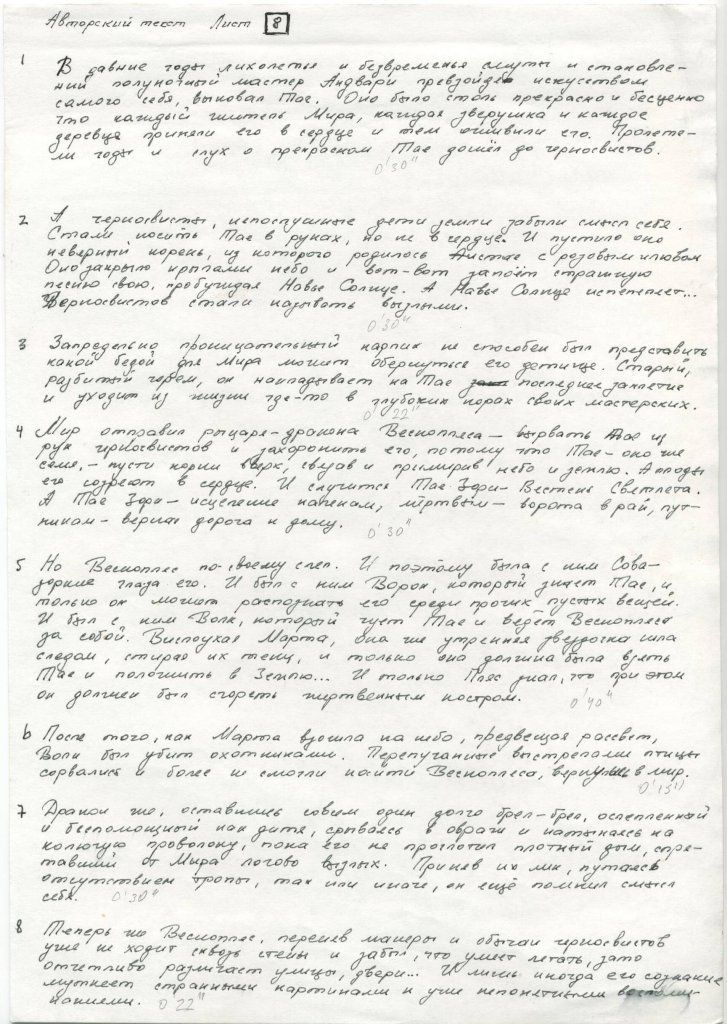 Авторский текст Лист 8
1 В давние годы лихолетья и безвременья смуты и становле-
ний полуночный мастер Андвари превзойдя искусством
самого себя, выковал Тае. Оно было столь прекрасно и бесценно
что каждый житель Мира, каждая зверушка и каждое
деревце приняли его в сердце и тем оживили его. Пролете-
ли годы и слух о прекрасном Тае дошёл до черносвистов.
0'30"
2 А черносвисты, непослушные дети земли забыли смысл себя.
Стали носить Тае в руках, но не в сердце. И пустило оно
неверный корень, из которого родилось Аистье с розовым клювом
Оно закрыло крылами небо и вот-вот запоёт страшную
песню свою, пробуждая Навье Солнце. А Навье Солнце испепеляет...
Черносвистов стали называть вызлыми.
0'30"
3 Запредельно проницательный карлик не способен был представить
какой бедой для Мира может обернуться его детище. Старый,
разбитый горем, он накладывает на Тае последнее заклятие
и уходит из жизни где-то в глубоких норах своих мастерских.
0'22"
4 Мир отправил рыцаря-дракона Веснопляса – вырвать Тае из
рук черносвистов и захоронить его, потому что Тае – оно же
семя, – пусти корни вверх, связав и примирив небо и землю. А плоды
его созреют в сердце. И случится Тае-Зори – Вестень Светлета.
А Тае Зори – исцеление калекам, мёртвым – ворота в рай, пут-
никам – верная дорога к дому.
0'30"
5 Но Веснопляс по-своему слеп. И поэтому была с ним Сова-
зоркие глаза его. И был с ним Ворон, который знает Тае, и
только он может распознать его среди прочих пустых вещей.
И был с ним Волк, который чует Тае и ведёт Веснопляса
за собой. Вислоухая Марта, она же утренняя звёздочка шла
следом, стирая их тени, и только она должна была взять
Тае и положить в Землю... И только Пляс знал, что при этом
он должен был сгореть жертвенным костром.
0'40"
6 После того, как Марта взошла на небо, предвещая рассвет,
Волк был убит охотниками. Перепуганные выстрелами птицы
сорвались и более не смогли найти Веснопляса, вернулись в мир.
0'15"
7 Дракон же, оставшись совсем один долго брёл-брёл, ослепленный
и беспомощный как дитя, срываясь в овраги и натыкаясь на
колючую проволоку, пока его не проглотил плотный дым, спря-
тавший от Мира логово вызлых. Приняв их лик, путаясь
отсутствием тропы, так или иначе, он ещё помнил смысл
себя.
0'30"
8 Теперь же Веснопляс, переняв манеры и обычаи черносвистов
уже не ходит сквозь стены и забыл, что умеет летать, зато
отчетливо различает улицы, двери... И лишь иногда его сознание
мутнеет странными картинами и уже непонятными воспоми-
наниями.
0 22"